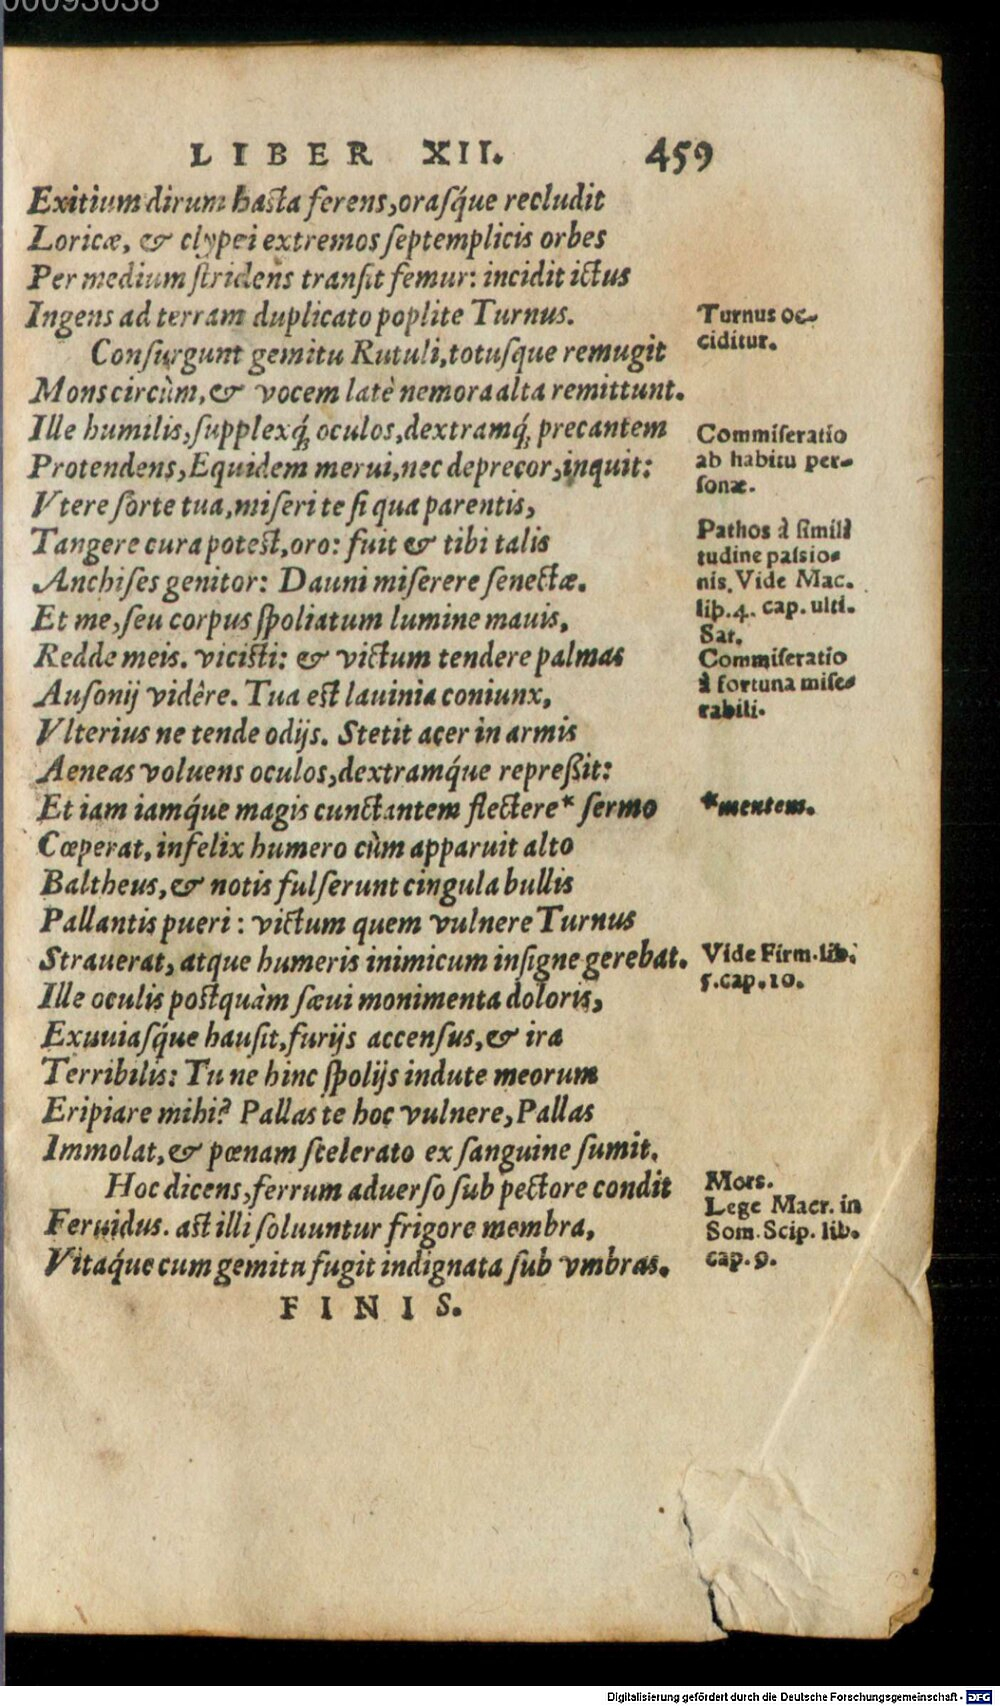 00093038
LIBER XII. 459
Exitium dirum hasta ferens, orasq́ue recludit
Loricæ, & clypei extremos septemplicis orbes
Per medium stridens transit femur: incidit ictus
Ingens ad terram duplicato poplite Turnus.
Consurgunt gemitu Rutuli, totusque remugit
Mons circùm, & vocem latè nemora alta remittunt.
Ille humilis, supplexq́; oculos, dextramq́; precantem
Protendens, Equidem merui, nec deprecor, inquit:
Vtere sorte tua, miseri te si qua parentis,
Tangere cura potest, oro: fuit & tibi talis
Anchises genitor: Dauni miserere senectæ.
Et me, seu corpus spoliatum lumine mauis,
Redde meis. vicisti: & victum tendere palmas
Ausonij vidêre. Tua est lauinia coniunx,
Vlterius ne tende odijs. Stetit acer in armis
Aeneas voluens oculos, dextramq́ue repreßit:
Et iam iamq́ue magis cunctantem flectere* sermo
Cœperat, infelix humero cùm apparuit alto
Baltheus, & notis fulserunt cingula bullis
Pallantis pueri: victum quem vulnere Turnus
Strauerat, atque humeris inimicum insigne gerebat.
Ille oculis postquàm sæui monimenta doloris,
Exuuiasq́ue hausit, furijs accensus, & ira
Terribilis: Tu ne hinc spolijs indute meorum
Eripiare mihi? Pallas te hoc vulnere, Pallas
Immolat, & pœnam scelerato ex sanguine sumit.
Hoc dicens, ferrum aduerso sub pectore condit
Feruidus. ast illi soluuntur frigore membra,
Vitaq́ue cum gemitu fugit indignata sub vmbras.
FINIS.
Turnus oc-
ciditur.
Commiseratio
ab habitu per-
sonæ.
Pathos à simili
tudine passio-
nis. Vide Mac.
lib. 4. cap. ulti.
Sat.
Commiseratio
à fortuna mise-
rabili.
*mentem.
Vide Firm. lib.
5. cap. 10.
Mors.
Lege Macr. in
Som. Scip. lib.
cap. 9.
Digitalisierung gefördert durch die Deutsche Forschungsgemeinschaft - DFG